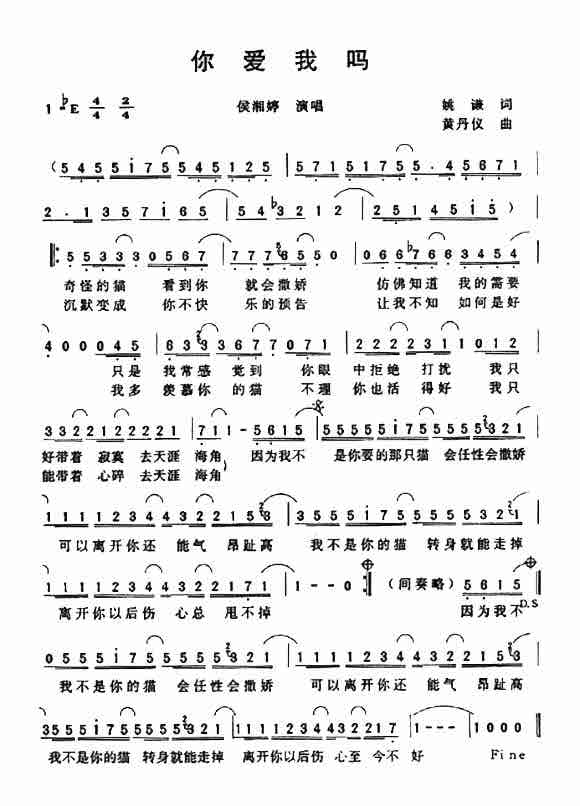 你爱我吗
1=♭E 4/4 2/4 侯湘婷 演唱 姚谦 词
黄丹仪 曲
(5455i75545125 | 571517 5.45671
2.1357i65 | 54♭3212 | 25145i5)
553330567 | 7776 5550 | 066♭7663454
奇怪的猫 看到你 就会撒娇 仿佛知道 我的需要
沉默变成 你不快 乐的预告 让我不知 如何是好
400045 | 6333677071 | 2222311012
只是 我常感 觉到 你眼 中拒绝 打扰 我只
我多 羡慕你 的猫 不理 你也活 得好 我只
33221221221 | 711-5615 | 55555i7555555321
好带着 寂寞 去天涯 海角 因为我不 是你要的那只猫 会任性会撒娇
能带着 心碎 去天涯 海角)
可以离开你还 能气 昂趾高 我不是你的猫 转身就能走掉
1--0 (间奏略) 5615
离开你以后伤 心总 甩不掉 因为我不
D.S
我不是你的猫 会任性会撒娇 可以离开你还 能气 昂趾高
1--- | 1000
我不是你的猫 转身就能走掉 离开你以后伤 心至 今不 好 Fine